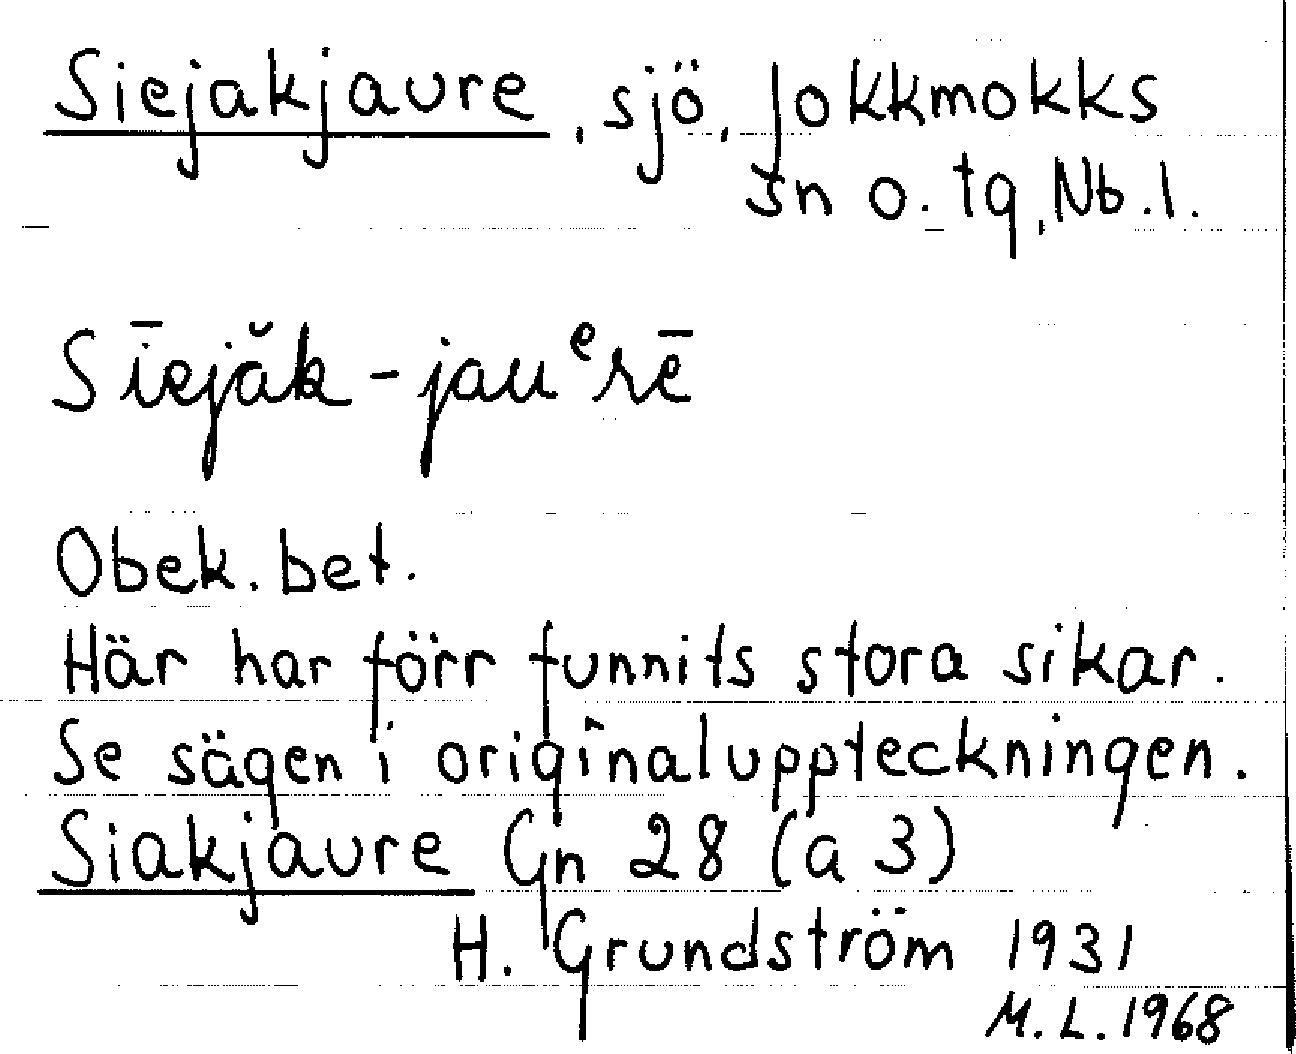 Siejakjaure, sjö, Jokkmokks
sn o. tg, Nb.l.
Sīejăk-jauᵉrē
Obek. bet.
Här har förr funnits stora sikar.
Se sägen i originaluppteckningen.
Siakjaure Gn 28 (a 3)
H. Grundström 1931
M.L. 1968